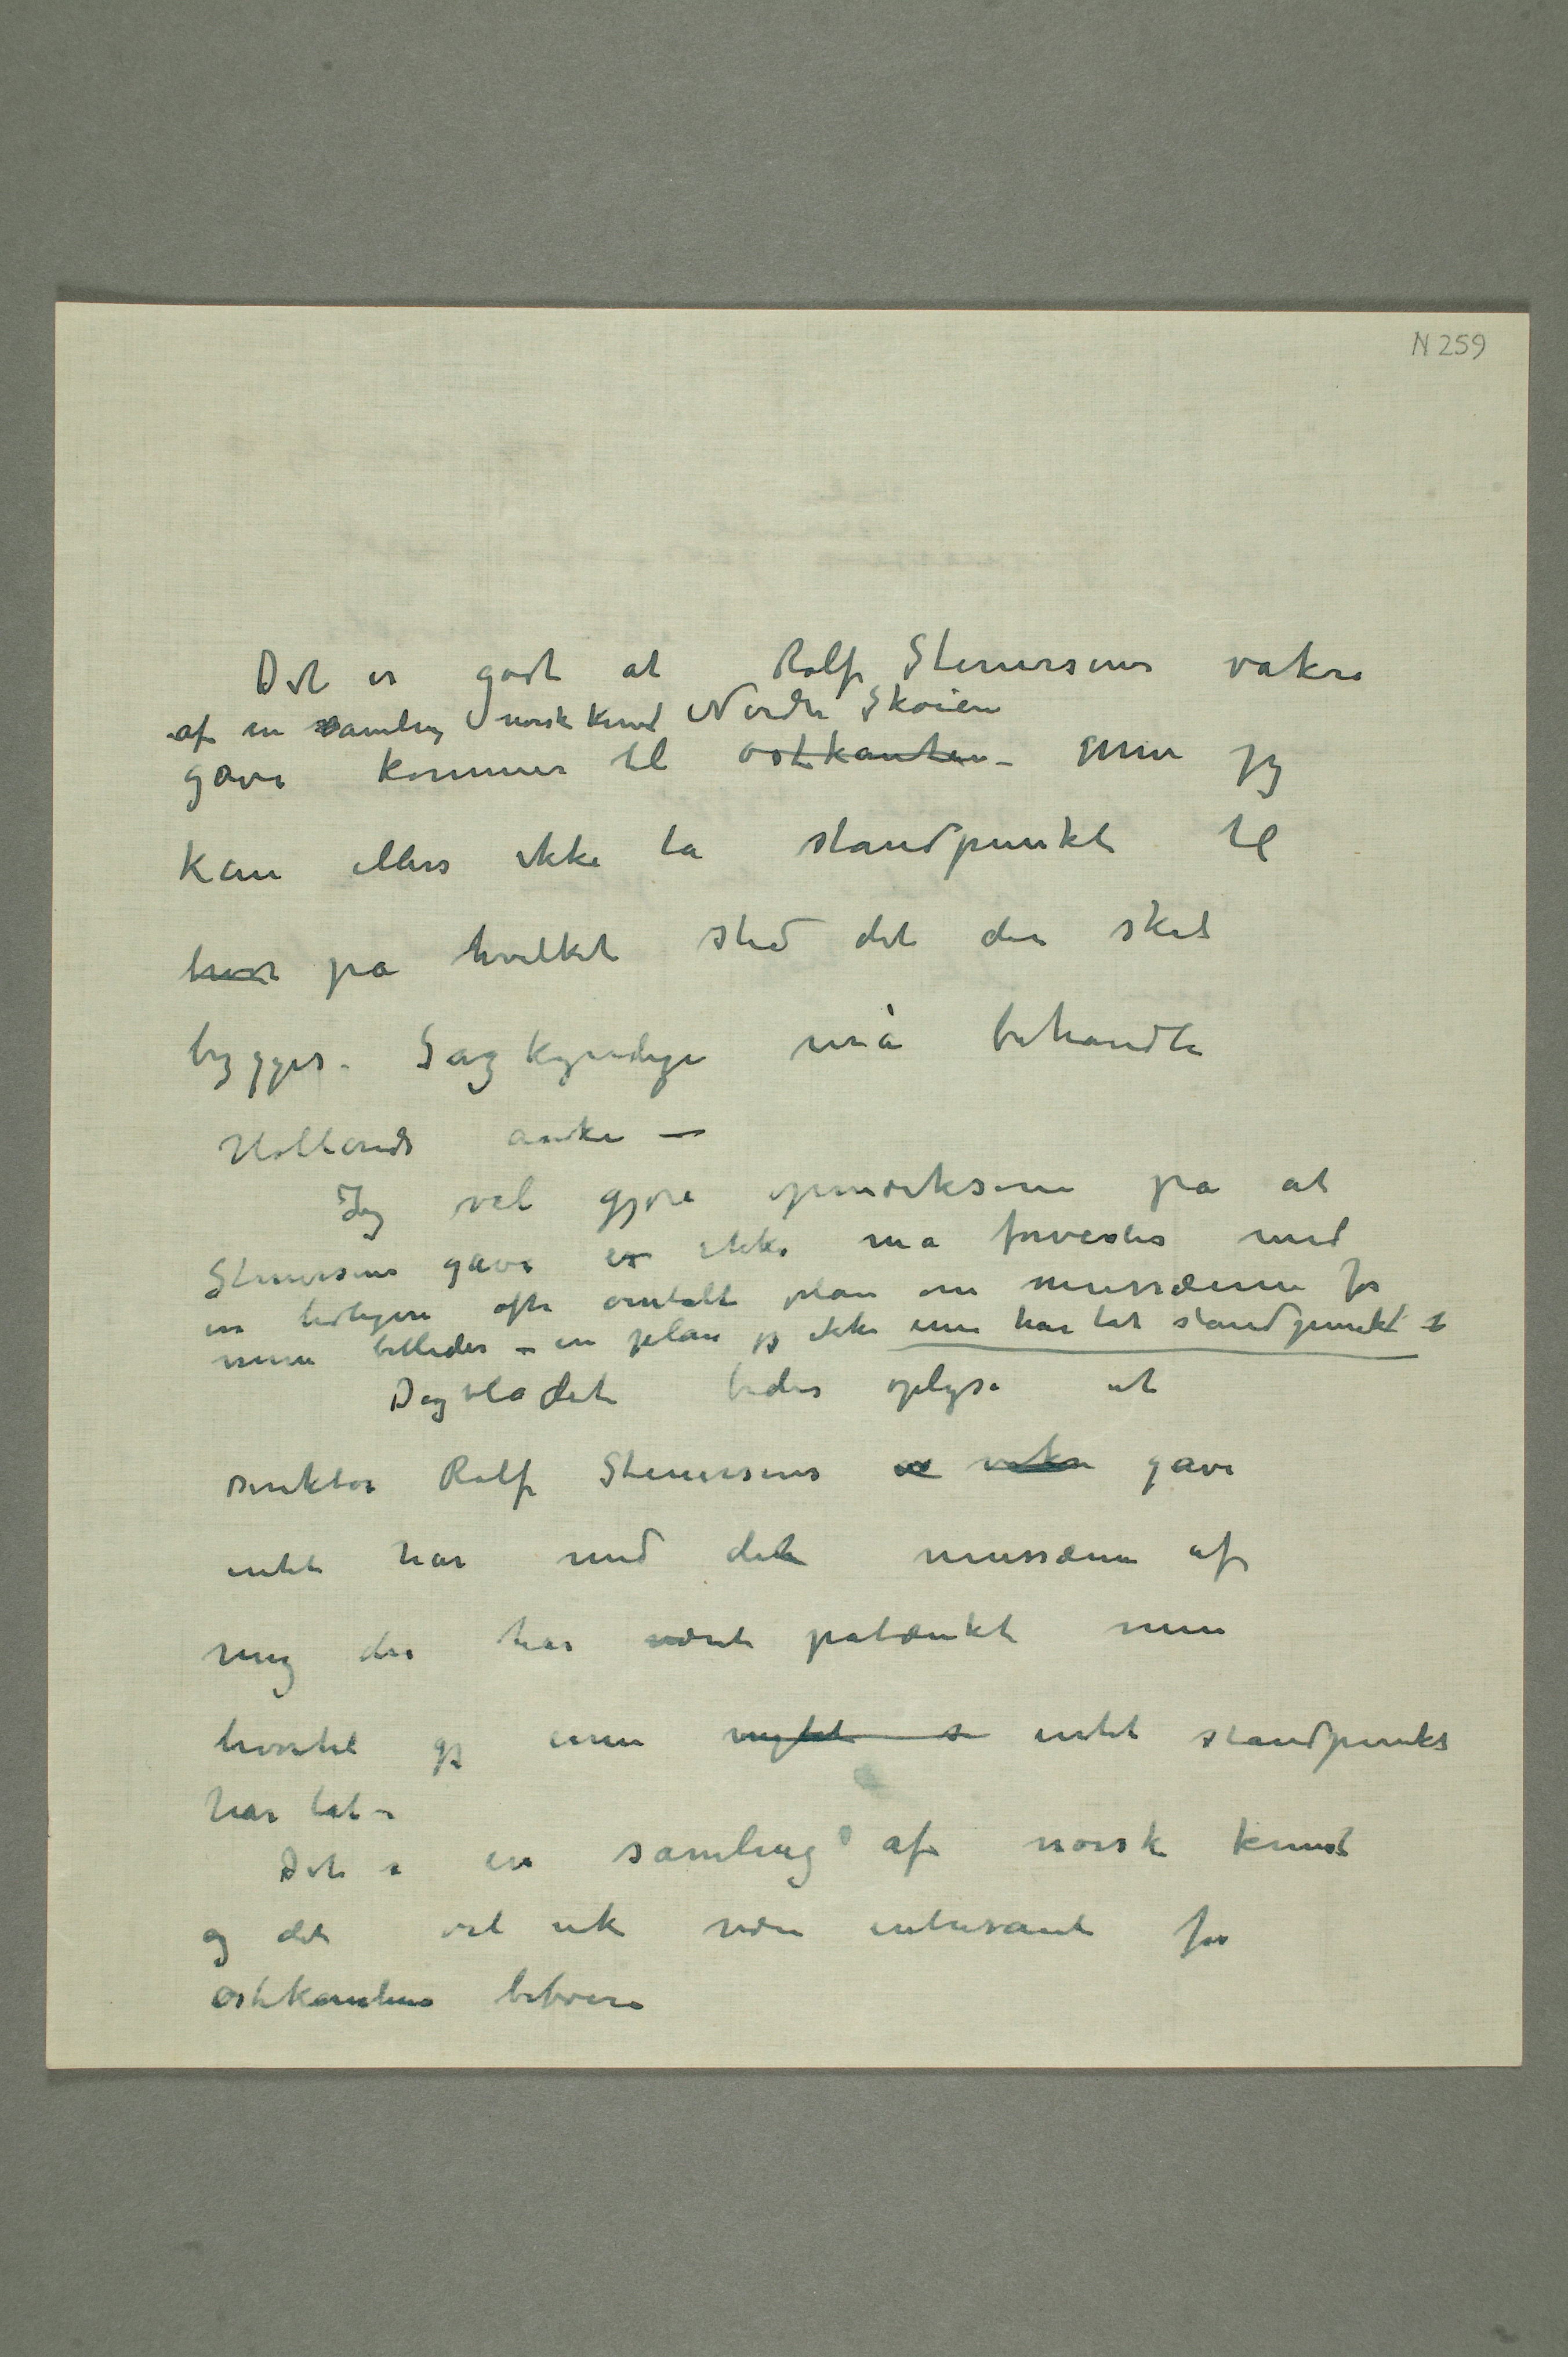 N 259
Det er godt at Rolf Stenersens vakre
af en samling norsk kunst Nordre Skøien
gave kommer til østkanten – men jeg
kan ellers ikke ta standpunkt til
hvor på hvilket sted det den skal
bygges. Sagkyndige må behandle
Hollands anke –
Jeg vil gjøre opmærksom på at
Stenersens gave er ikke må forvexles med
en tidligere ofte omtalt plan om mussæum for
mine billeder – en plan jeg ikke enu har tat standpunkt t
Dagbladet bedes oplyse at
Direktør Rolf Stenersens vakre gave
intet har med det mussæum af
mig der har været påtænkt men
hvortil jeg enu intet standpunkt
har tat –
Det er en samling af norsk kunst
og det vil nok være intresant for
østkantens beboere